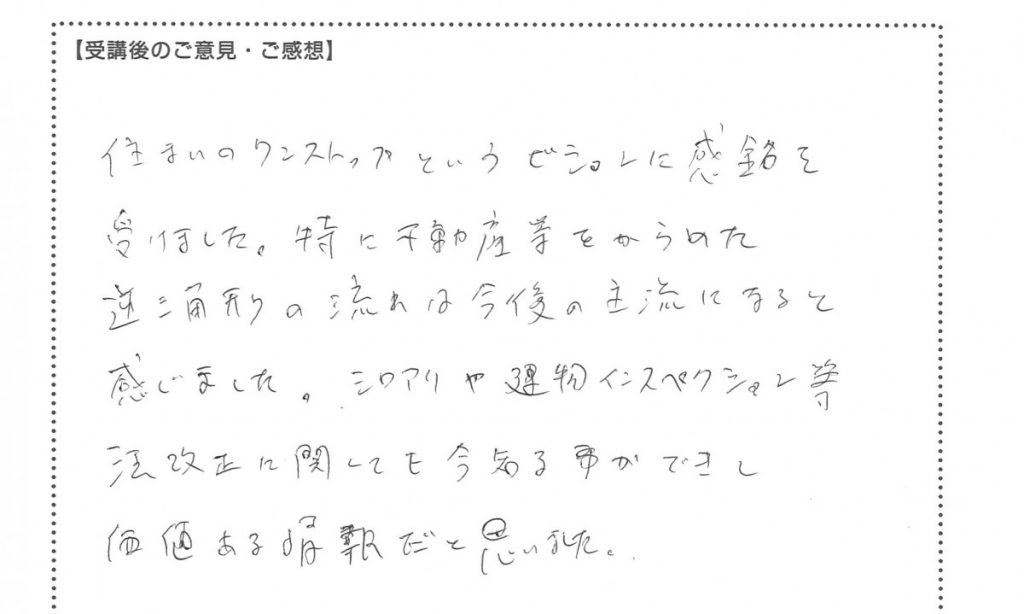 【受講後のご意見・ご感想】
住まいのワンストップというビジョンに感銘を
受けました。特に不動産業をからめた
逆三角形の流れは今後の主流になると
感じました。シロアリや建物インスペクション等
法改正に関しても今知る事ができ
価値ある情報だと思いました。